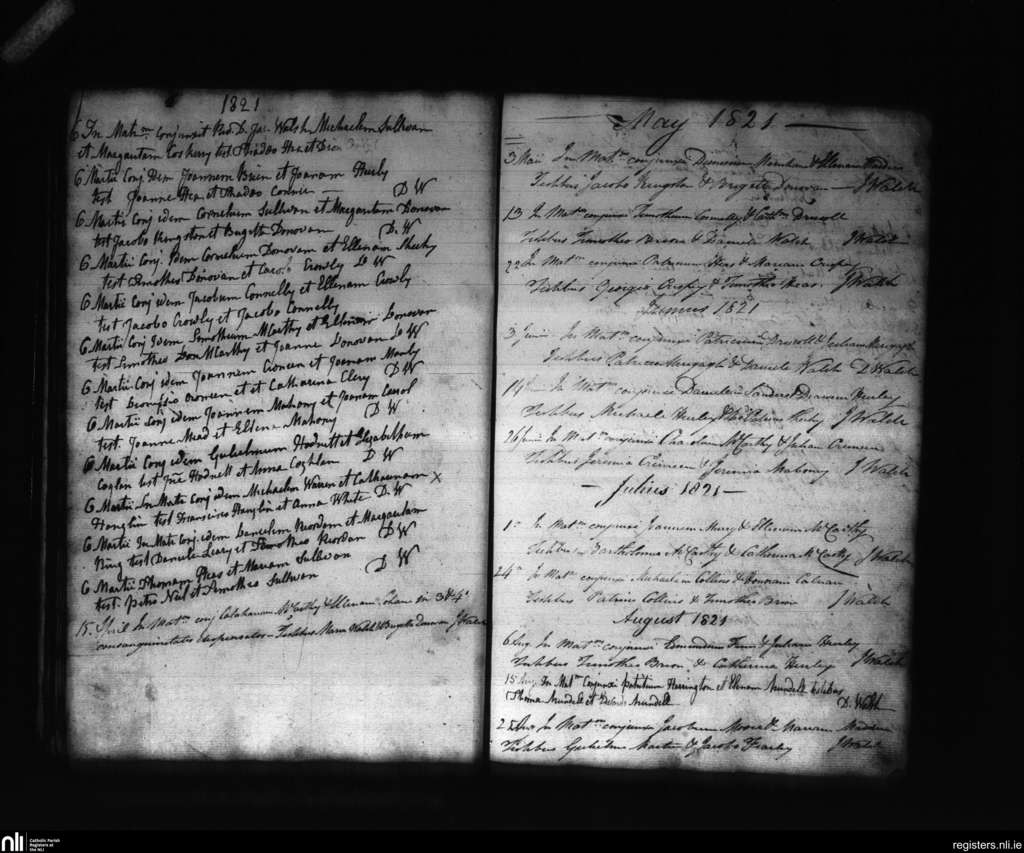 1821
6 In Mat.m Conjunxit Rvd. D. Jac. Walsh Michaelem Sullivan
et Margaritam Coskery test Thadeo Hea et
6 Martii Conj Idem Joannem Brien et Joanam Sheehy
test Joanne Hea et Thadeo Connor — D W
6 Martii Conj idem Cornelium Sullivan et Margaritam Donovan
test Jacobo Kingston et Brigetta Donovan D. W
6 Martii Conj. Idem Cornelium Donovan et Ellenam Sheehy
Test Timotheo Donovan et Jacobo Crowly D W
6 Martii Conj idem Jacobum Connelly et Ellenam Crowly
test Jacobo Crowly et Jacobo Connelly
6 Martii Conj Idem Timotheum McCarthy et Ellenam Donovan
test Timotheo Don McCarthy et Joanne Donovan D W
6 Martii Conj idem Joannem Croneen et Joanam Manly
test Dionysio Croneen et Catharina Clery D W
6 Martii Conj idem Joannem Mahony et Joanam Carol
test. Joanne Mead et Ellena Mahony D W
6 Martii Conj idem Gulielmum Hodnett et Elizabetham
Coglan test Hodnett et Anna Coghlan D W
6 Martii In Mate Conj idem Michaelem Warren et Catharinam X
Hanglin test Francisco Hanglin et Anna White D. W
6 Martii In Mate Conj. idem Danielem Riordan et Margaritam
Ring test Daniele Leary et Timotheo Riordan D W
6 Martii Thomam Heas et Mariam Sullivan
test. Petro Neil et Timotheo Sullivan D W
15. April In Matm conj Calahanum McCarthy & Ellenam in 3 & 4°
consanguinitatis dispensatos — Testibus Maria Walsh & Brigetta J Walsh
— May 1821 —
3 Maii In Matm conjunxi & Ellenam
Testibus Jacobo Kingston & Brigetta Donovan — J Walsh
13 In Matm conjunxi Timotheum Connelly & Cathm Driscoll
Testibus Timotheo & Daniele Walsh J Walsh
22 In Matm conjunxi Patricium Heas & Mariam
Testibus Georgio & Timotheo Heas. J Walsh
Junius 1821
3 Junii In Matm conjunxi Patricium Driscoll & Murragh
Testibus Patricio Murragh & Daniele Walsh D Walsh
14 In Matm conjunxi Danielem & Hurley
Testibus Michaele Hurley & J Walsh
26 Junii In Matm conjunxi Charolum McCarthy & Julian Crimeen
Testibus Jeremia Crimeen & Jeremia Mahony J Walsh
— Julius 1821 —
1° In Matm conjunxi Joannem Murry & Ellenam McCarthy
Testibus Bartholomeo McCarthy & Catherina McCarthy J Walsh
24° In Matm conjunxi Michaelem Collins & Honoram
Testibus Patricio Collins & Timotheo Brien J Walsh
August 1821
6 Aug. In Matm conjunxi Edmundum & Julian Hurley
Testibus Timotheo Brien & Catherina Hurley J Walsh
15 Aug. In Matm Conjunxi patritium Harrington et Elenam Arundell testibus
Thoma Arundell et Arundell D. Walsh
25 Aug In Matm conjunxi Jacobum & Mariam
Testibus Gulielmo Martin & Jacobo J Walsh
nli
Catholic Parish
Registers at
the NLI
registers.nli.ie